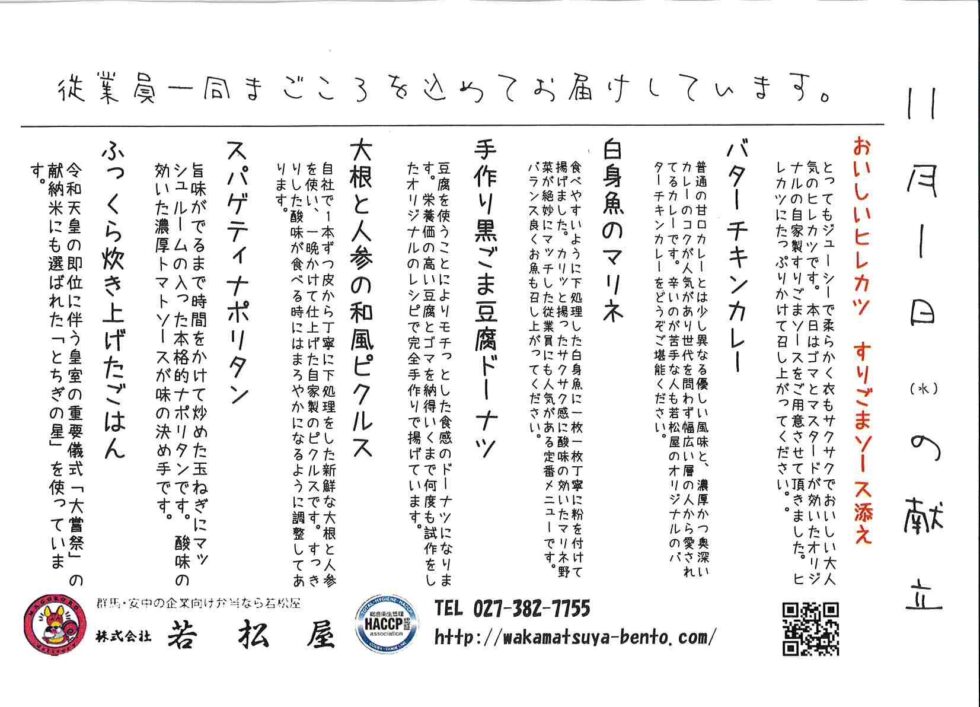 11月1日(水)の献立
従業員一同まごころを込めてお届けしています。
おいしいヒレカツ　すりごまソース添え
とってもジューシーで柔らかく衣もサクサクでおいしい大人
気のヒレカツです。本日はゴマとマスタードが効いたオリジ
ナルの自家製すりごまソースをご用意させて頂きました。ヒ
レカツにたっぷりかけて召し上がってください。。
バターチキンカレー
普通の甘口カレーとは少し異なる優しい風味と、濃厚かつ奥深い
カレーのコクが人気があり世代を問わず幅広い層の人から愛され
てるカレーです。辛いのが苦手な人も若松屋のオリジナルのバ
ターチキンカレーをどうぞご堪能ください。
白身魚のマリネ
食べやすいように下処理した白身魚に一枚一枚丁寧に粉を付けて
揚げました。カリッと揚ったサクサク感に酸味の効いたマリネ野
菜が絶妙にマッチした従業員にも人気がある定番メニューです。
バランス良くお魚も召し上がってください。
手作り黒ごま豆腐ドーナツ
豆腐を使うことによりモチっとした食感のドーナツになりま
す。栄養価の高い豆腐とゴマを納得いくまで何度も試作をし
たオリジナルのレシピで完全手作りで揚げています。
大根と人参の和風ピクルス
自社で1本ずつ皮から丁寧に下処理をした新鮮な大根と人参
を使い、一晩かけて仕上げた自家製のピクルスです。すっき
りした酸味が食べる時にはまろやかになるように調整してあ
ります。
スパゲティナポリタン
旨味がでるまで時間をかけて炒めた玉ねぎにマッ
シュルームの入った本格的ナポリタンです。酸味の
効いた濃厚トマトソースが味の決め手です。
ふっくら炊き上げたごはん
令和天皇の即位に伴う皇室の重要儀式「大嘗祭」の
献納米にも選ばれた「とちぎの星」を使っていま
す。
群馬・安中の企業向け弁当なら若松屋
株式会社 若松屋
HACCP
association
TEL 027-382-7755
http://wakamatsuya-bento.com/